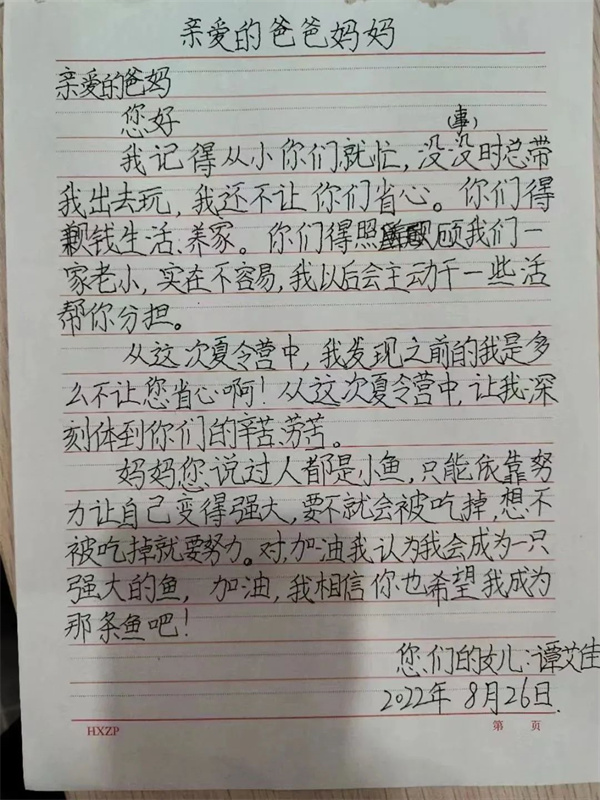 亲爱的爸爸妈妈
亲爱的爸妈
您好
（事）
我记得从小你们就忙，没没时总带
我出去玩，我还不让你们省心。你们得
钱生活、养家。你们得照顾我们一
家老小，实在不容易，我以后会主动干一些活
帮你分担。
从这次夏令营中，我发现之前的我是多
么不让您省心啊！从这次夏令营中，让我深
刻体到你们的辛苦、劳苦。
妈妈您说过人都是小鱼，只能依靠努
力让自己变得强大，要不就会被吃掉，想不
被吃掉就要努力。对，加油我认为我会成为一只
强大的鱼，加油，我相信你也希望我成为
那条鱼吧！
您们的女儿：谭艾佳
2022年8月26日.
HXZP 第 页